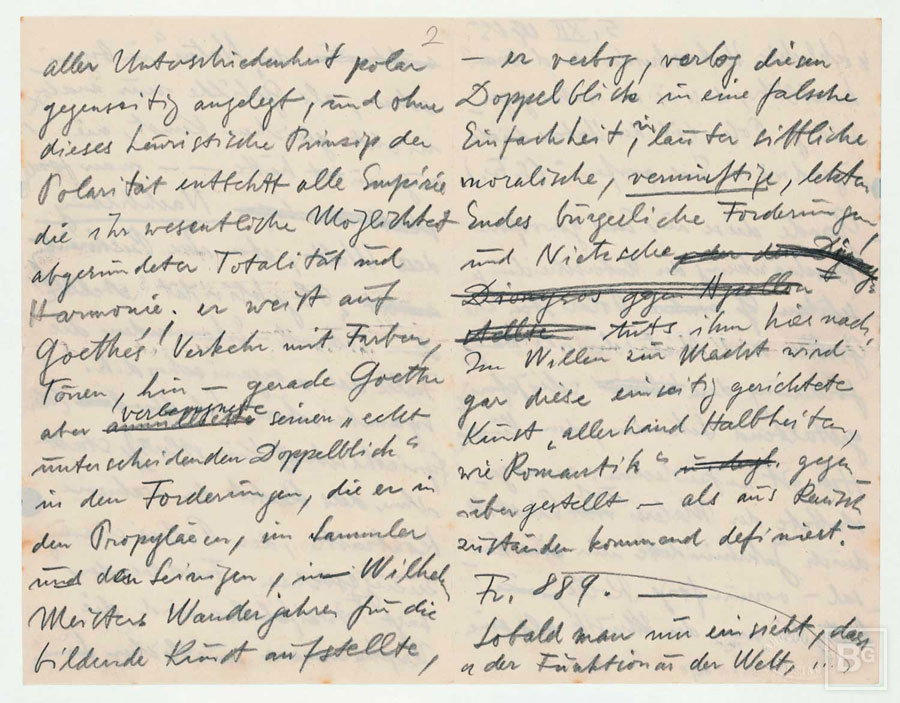 2
aller Unterschiedenheit polar
gegenseitig angelegt, und ohne
dieses heuristische Prinzip der
Polarität entsteht alle Empirie
die ihr wesentliche Möglichkeit
abgerundeter Totalität und
Harmonie. er weist auf
Goethes! Verkehr mit Farben,
Tönen, hin – gerade Goethe
aber verleugnete seinen „echt
unterscheidenden Doppelblick"
in den Forderungen, die er in
den Propyläen, im Sammler
und den Seinigen, im Wilhelm
Meisters Wanderjahren für die
bildende Kunst aufstellte,
– er verbog, verlog diesen
Doppelblick in eine falsche
Einfachheit, in lauter sittliche
moralische, vernünftige, letzten
Endes bürgerliche Forderungen!
und Nietzsche oder den
Dionysos gegen Apollon
stellte tuts ihm hier nach,
Im Willen zur Macht wird
gar diese einseitig gerichtete
Kunst „allerhand Halbheiten,
wie Romantik" gegen
übergestellt – als aus Rausch
zuständen kommend definiert.
Fr. 889.
Sobald man nun einsieht, dass
a der Funktion a der Welt, ...,
BG